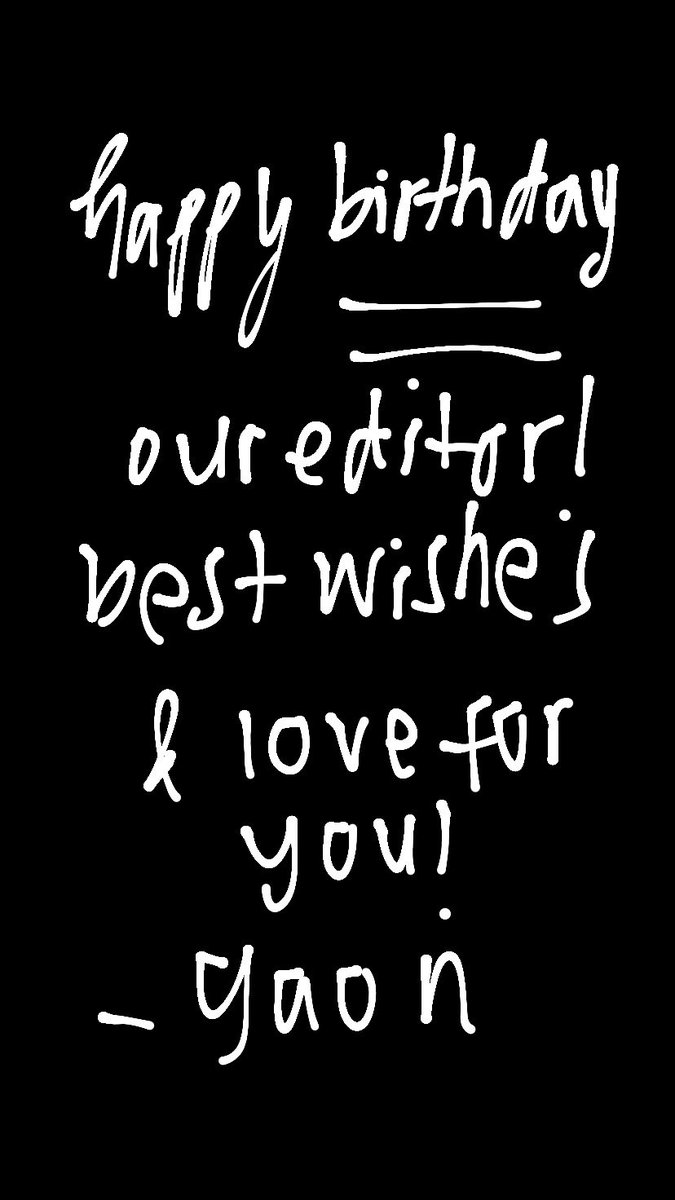 happy birthday
our editor!
best wishes
& love for
you!
- gaon